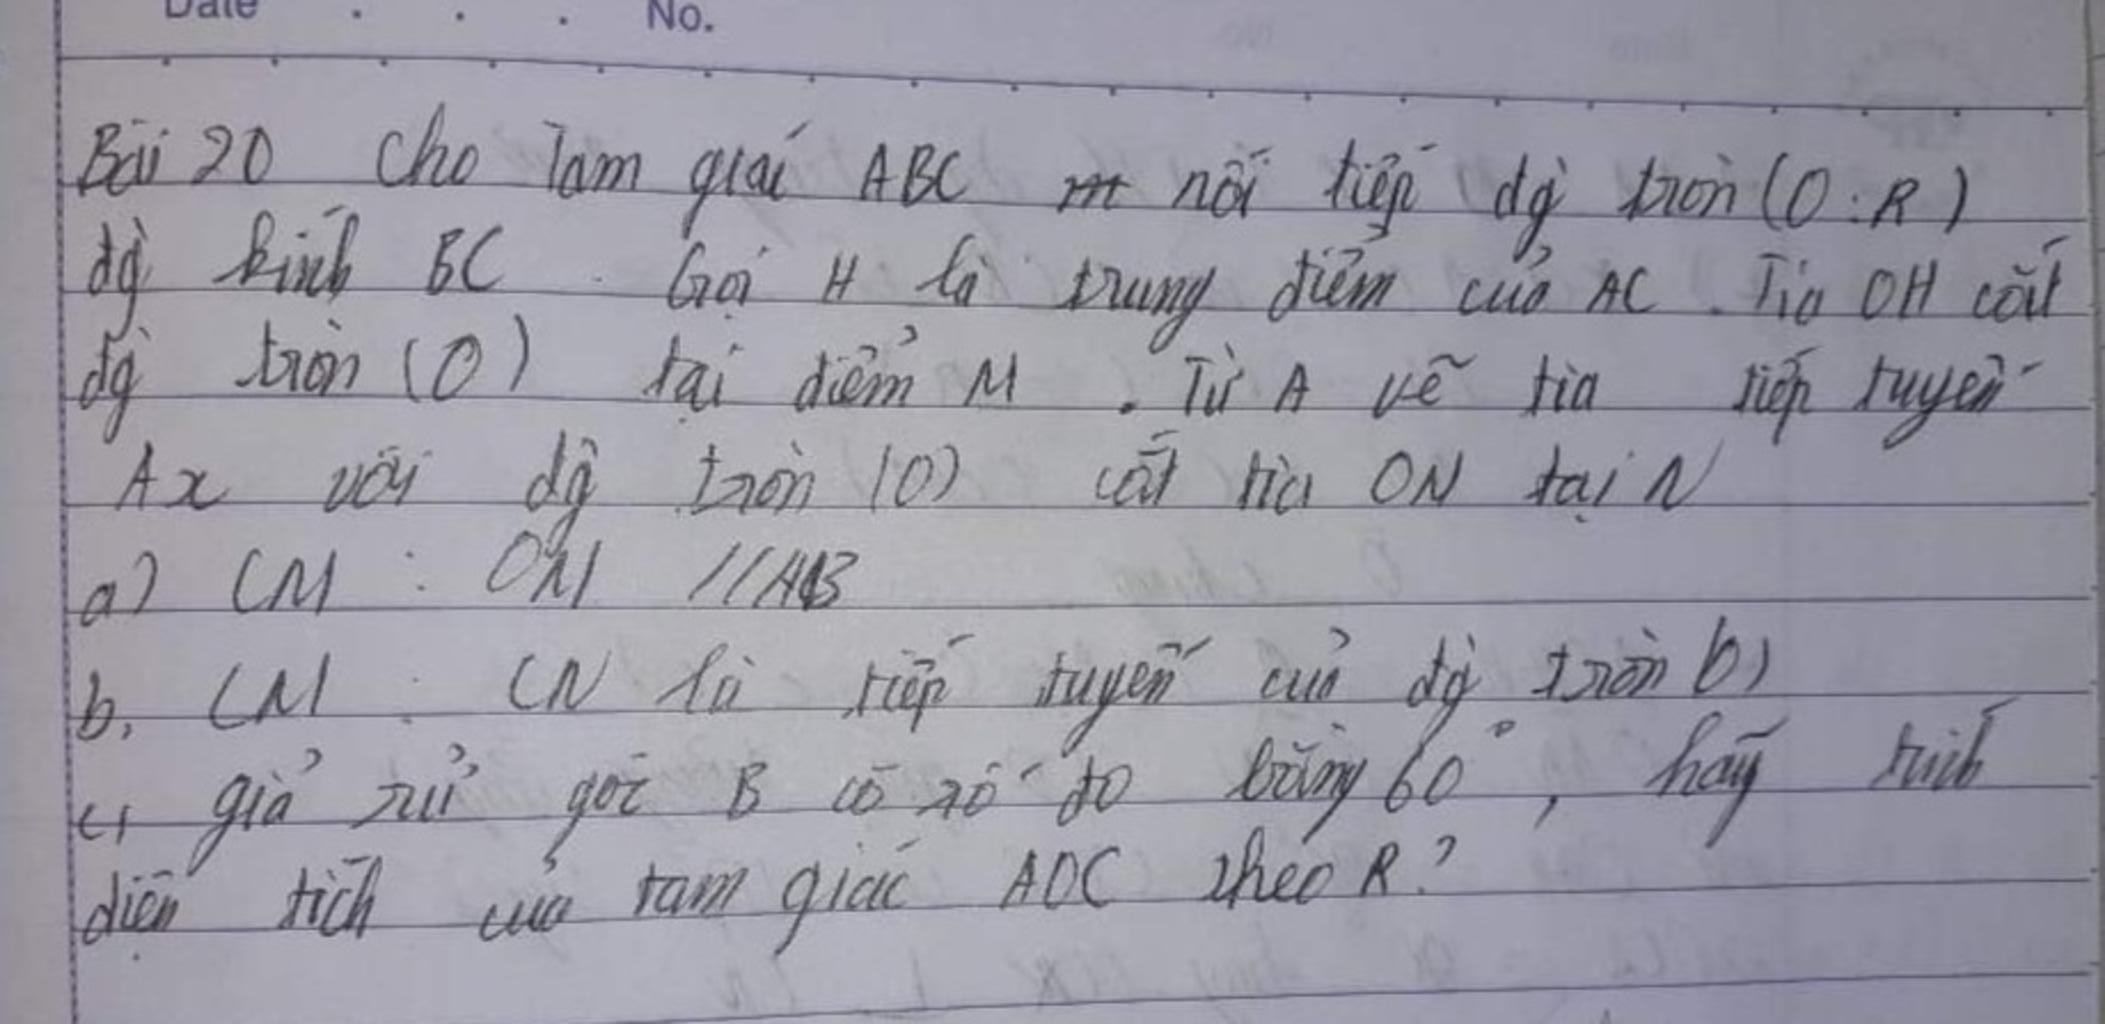 Date . . . No.
Bài 20 Cho Tam giác ABC nối tiếp đg tròn (O:R)
đg kính BC. Gọi H là trung điểm của AC. Tia OH cắt
đg tròn (O) tại điểm M. Từ A vẽ tia tiếp tuyến
Ax với đg tròn (O) cắt tia ON tại N
a) CM: OM // AB
b, CM: CN là tiếp tuyến của đg tròn
c, giả sử góc B có số đo bằng 60°, hãy tính
diện tích của tam giác AOC theo R?